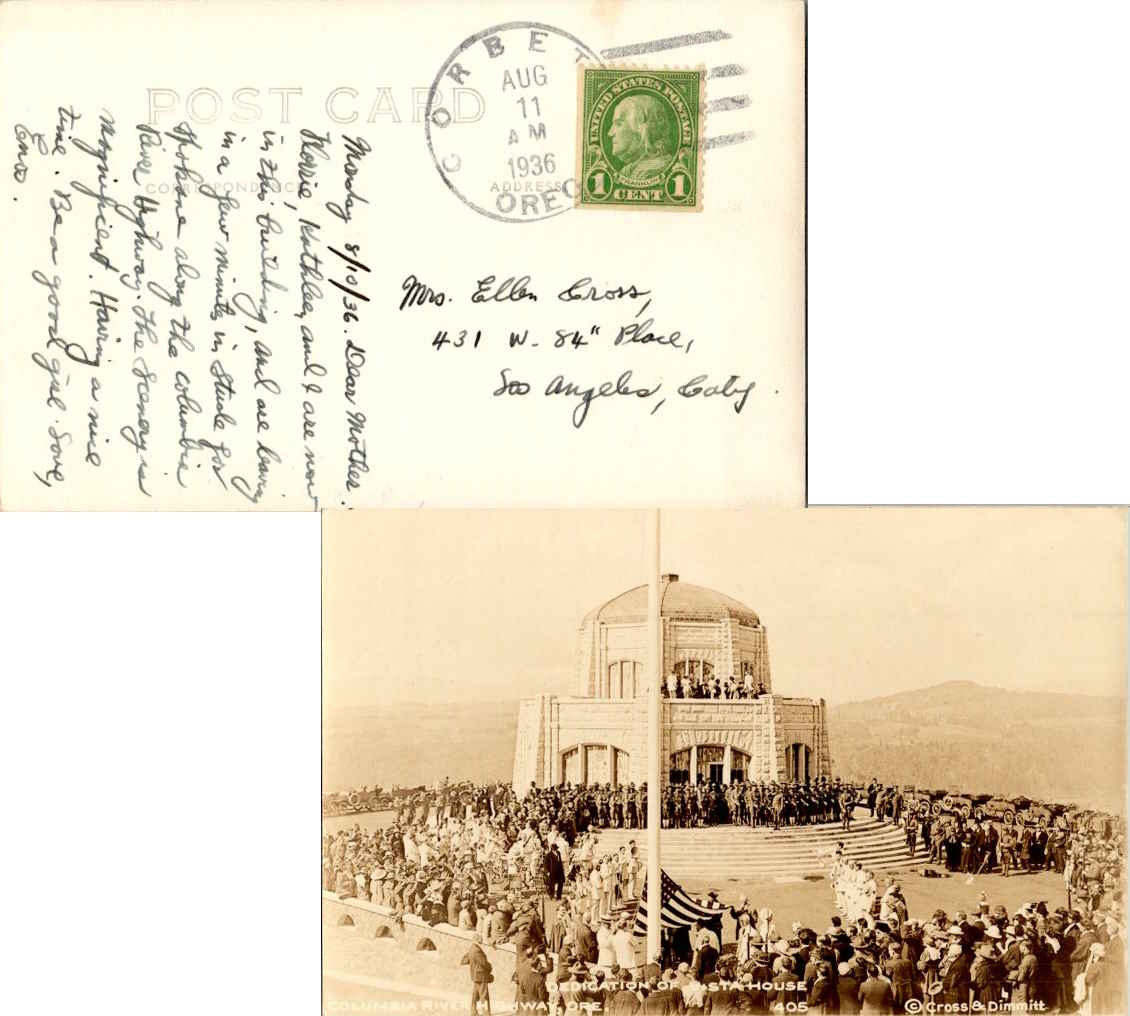 POST CARD
CORRESPONDENCE
ADDRESS
CORBETT
AUG
11
AM
1936
OREG
UNITED STATES POSTAGE
FRANKLIN
1 CENT 1
Monday 8/10/36. Dear Mother.
Kathleen and I are now
in this building, and are leaving
in a few minutes in Stude for
Spokane along the Columbia
River Highway. The scenery is
magnificent. Having a nice
time. Be a good girl. Love,
Mrs. Ellen Cross,
431 W. 84" Place,
Los Angeles, Calif.
DEDICATION OF VISTA HOUSE
COLUMBIA RIVER HIGHWAY, ORE. 405 © Cross & Dimmitt